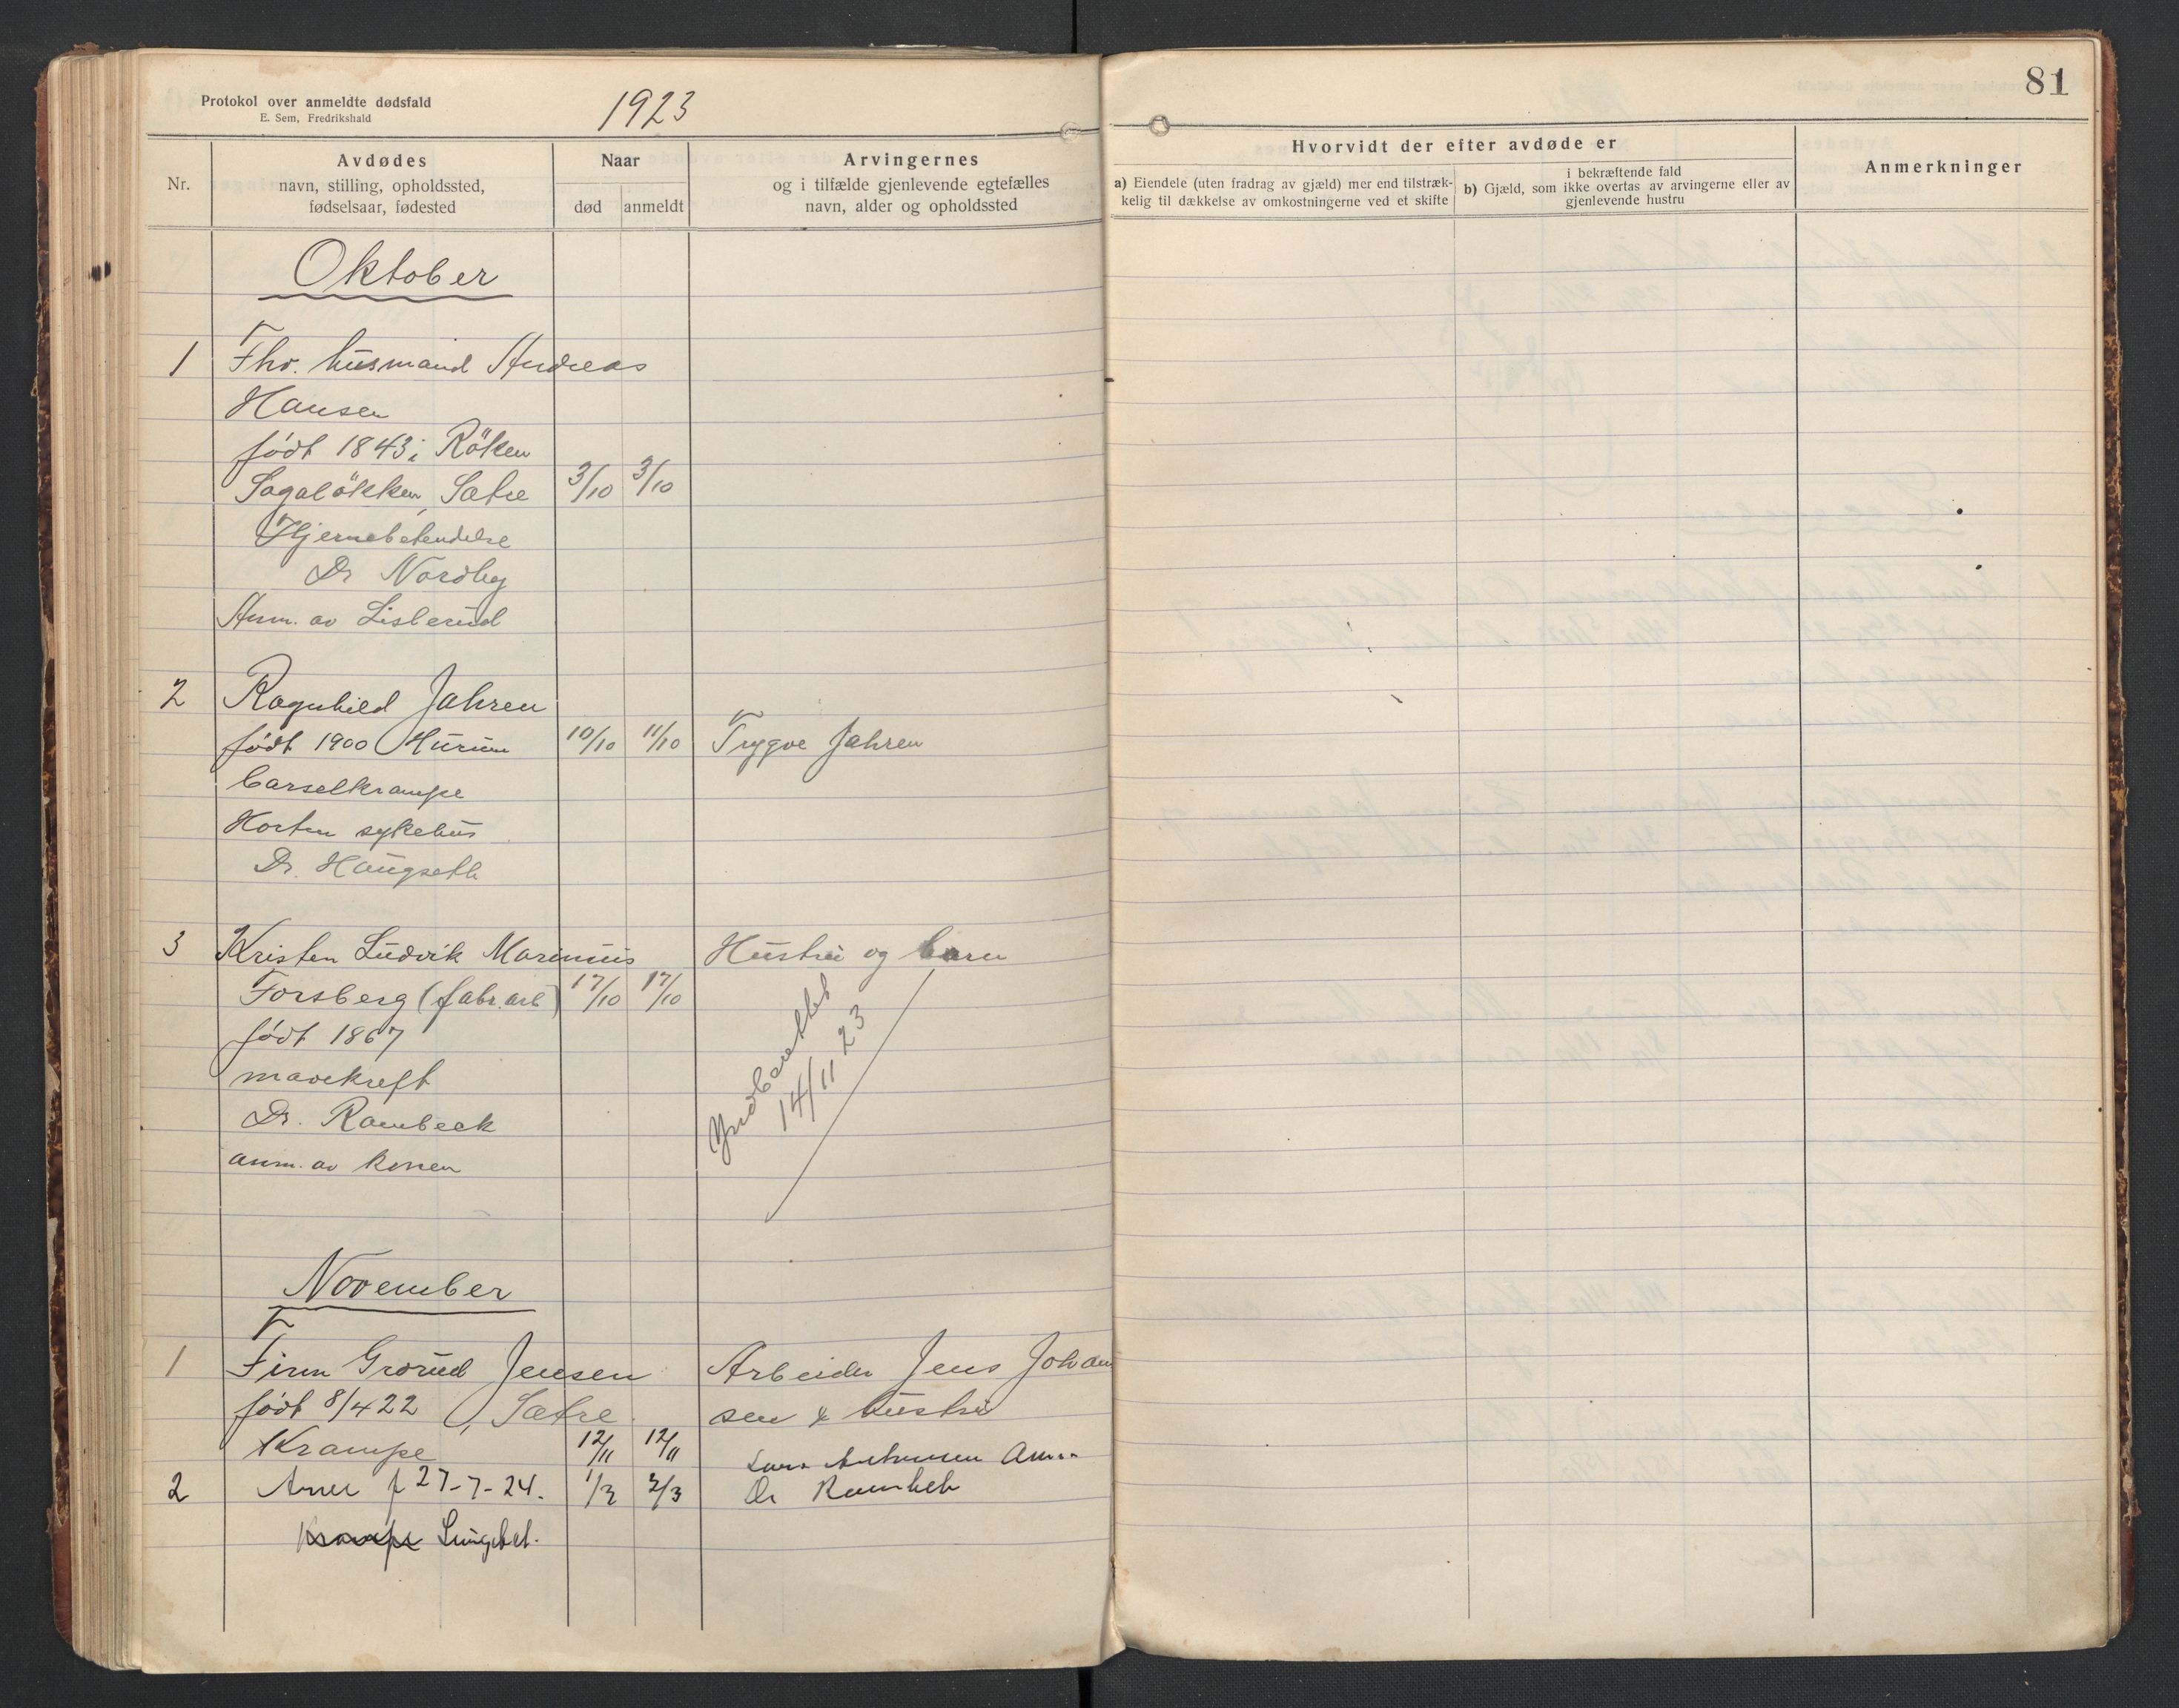 Protokol over anmeldte dødsfald
E. Sem, Fredrikshald
1923
81
Nr.
Avdødes
navn, stilling, opholdssted,
fødselsaar, fødested
Naar
død
anmeldt
Arvingernes
og i tilfælde gjenlevende egtefælles
navn, alder og opholdssted
Hvorvidt der efter avdøde er
a) Eiendele (uten fradrag av gjæld) mer end tilstræk-
kelig til dækkelse av omkostningerne ved et skifte
i bekræftende fald
b) Gjæld, som ikke overtas av arvingerne eller av
gjenlevende hustru
Anmerkninger
Oktober
1 Fhv. husmand Andreas
Hansen
født 1843 i Röken
Sagalökken, Sætre 3/10 3/10
Hjernebetendelse
Dr Nordby
Anm. av Lisberud
2 Ragnhild Jahren
født 1900 Hurum 10/10 11/10 Trygve Jahren
barselkrampe
Horten sykehus
Dr. Haugseth
3 Kristen Ludvik Marinius Hustru og barn
Forsberg (fabr.arb) 17/10 17/10
født 1867
mavekreft
Dr. Rambeck
anm. av konen
Indberettet
14/11 23
November
1 Finn Grorud Jensen Arbeider Jens Johan
født 8/4 22, Sætre sen & hustru
Krampe 12/11 12/11
2 f 27-7-24. 1/3 2/3 Dr
Krampe Lungebet.